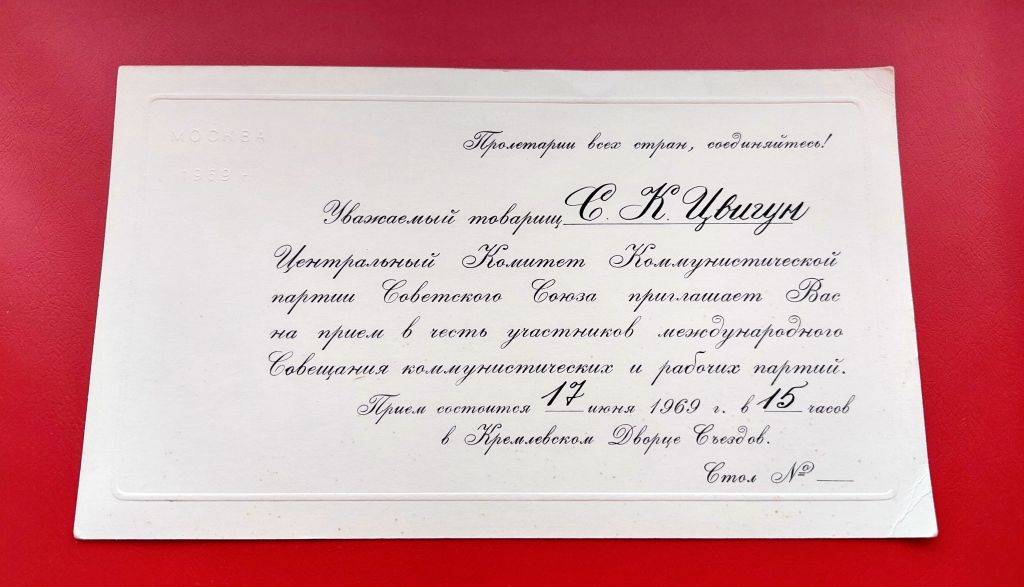 МОСКВА
1969 г.
Пролетарии всех стран, соединяйтесь!
Уважаемый товарищ С. К. Цвигун
Центральный Комитет Коммунистической
партии Советского Союза приглашает Вас
на прием в честь участников международного
Совещания коммунистических и рабочих партий.
Прием состоится 17 июня 1969 г. в 15 часов
в Кремлевском Дворце Съездов.
Стол №